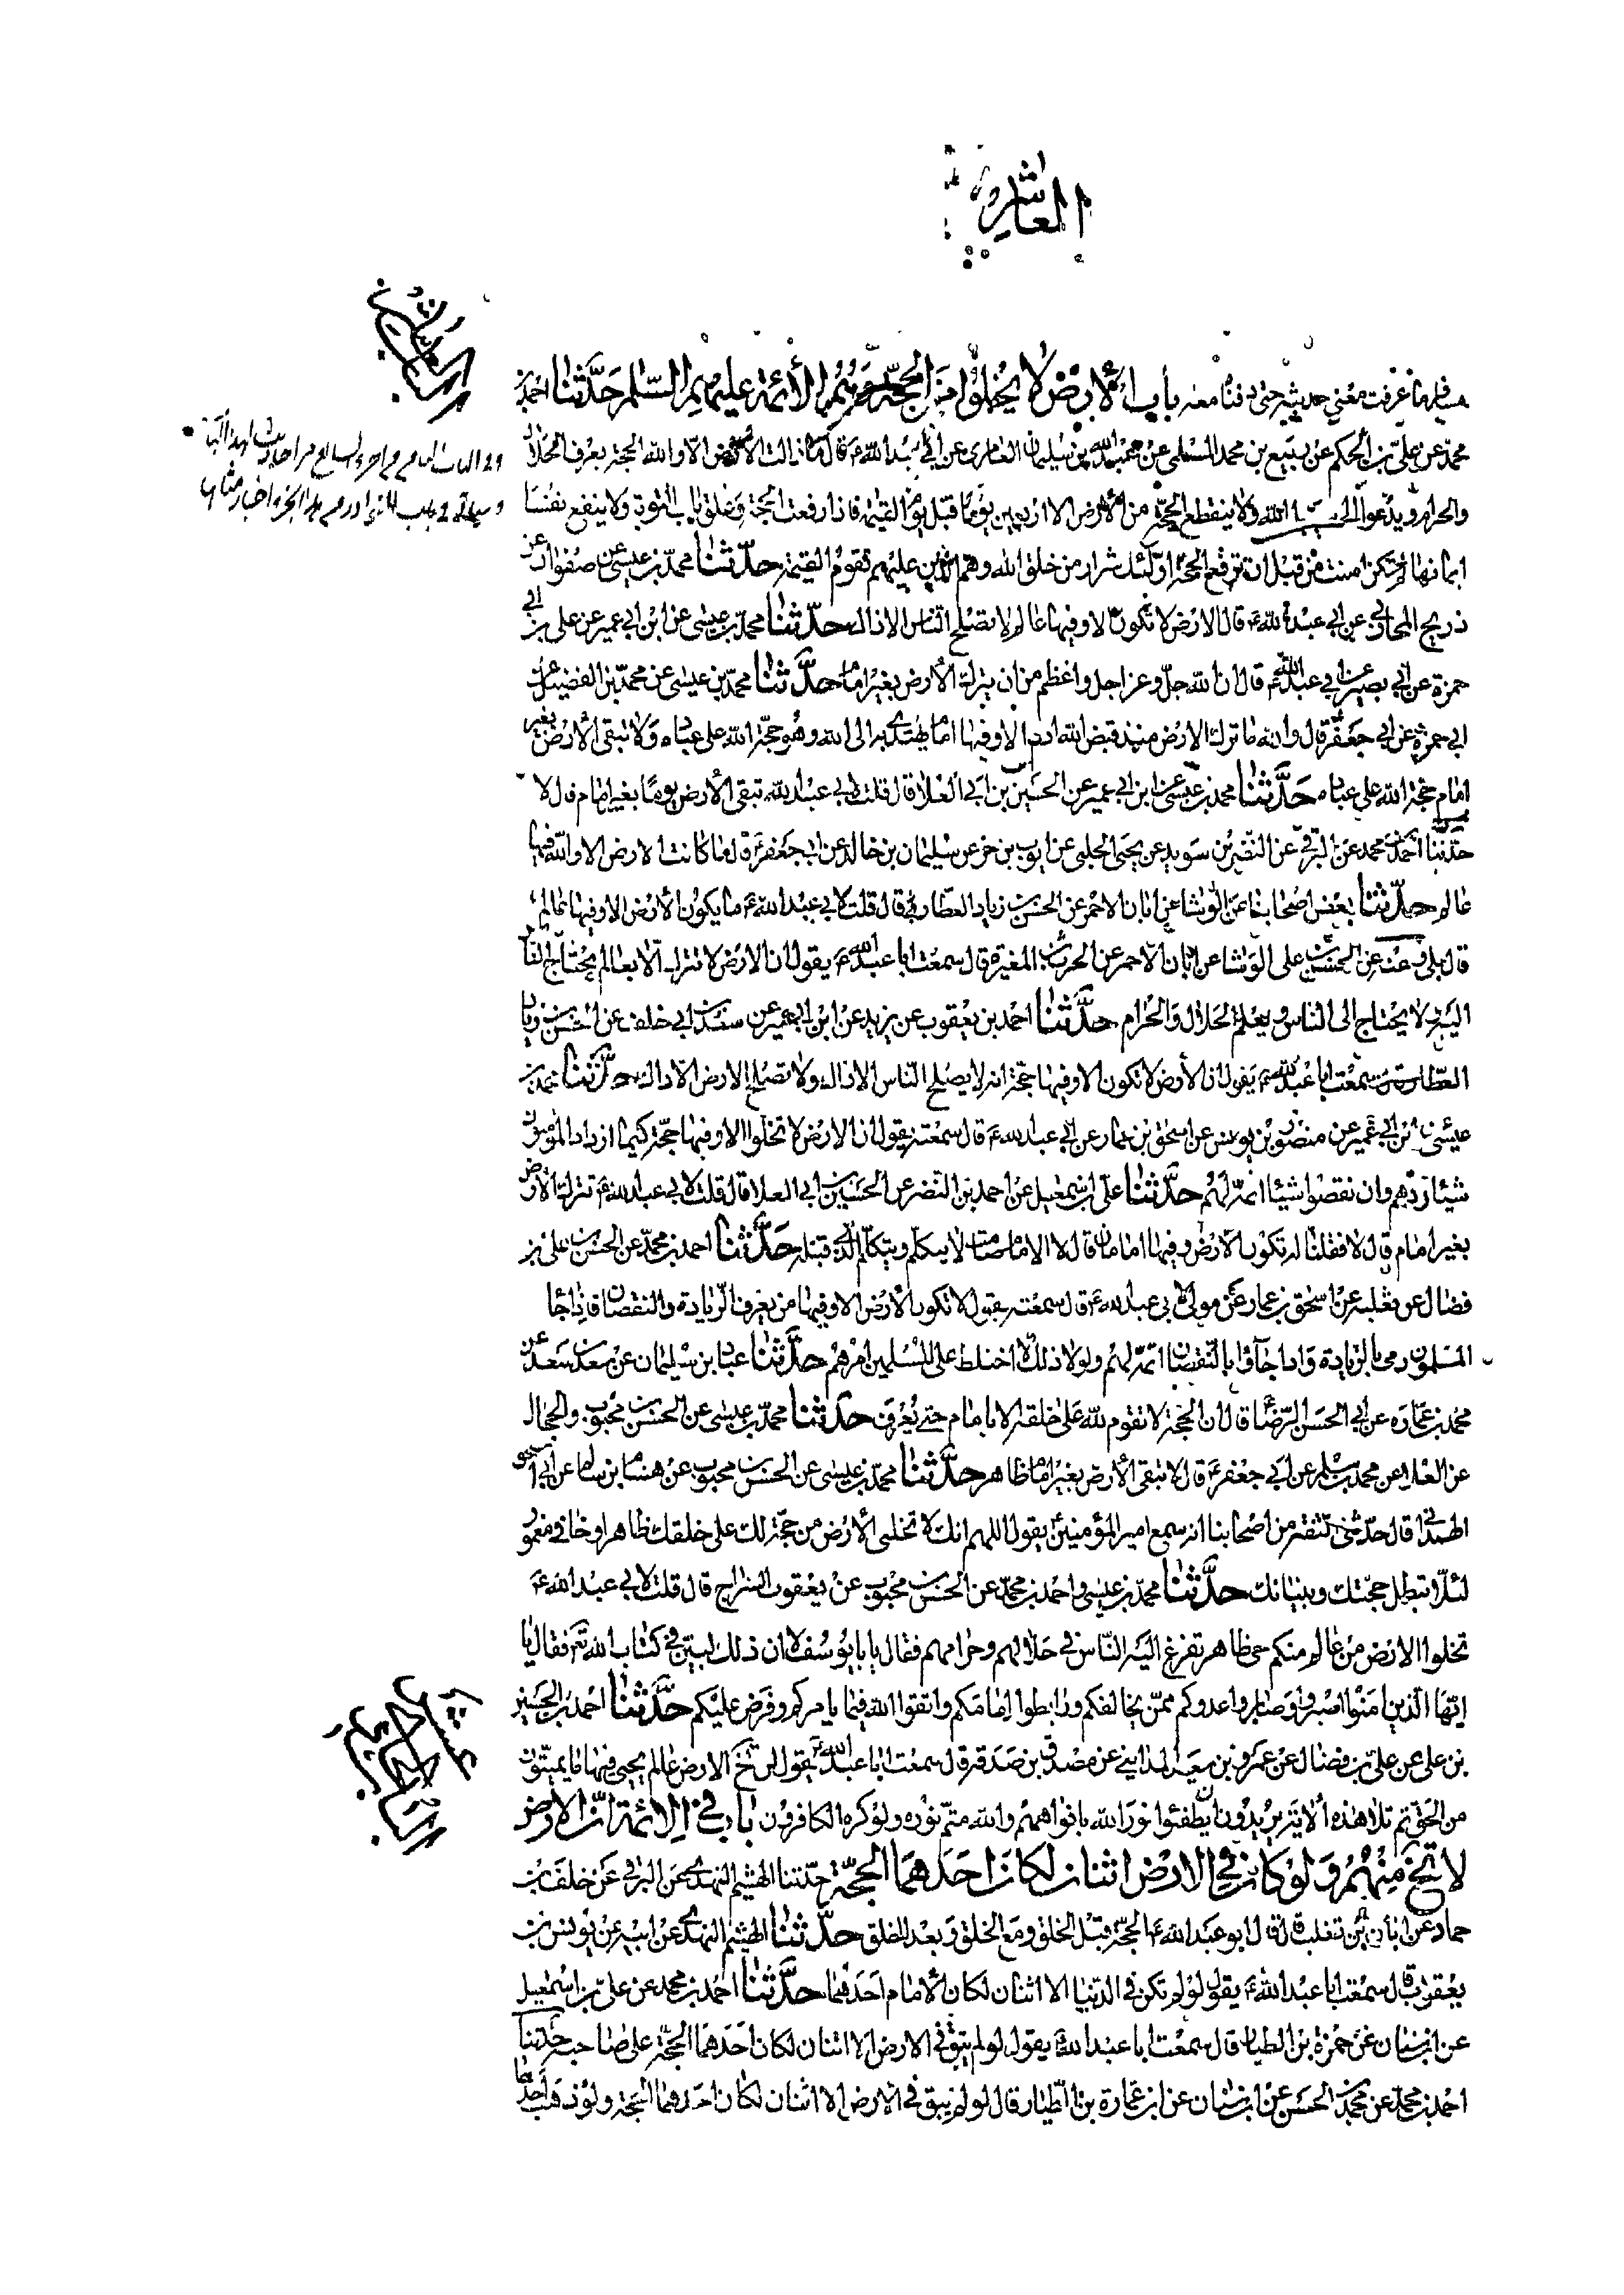 العاشر
فلما عرفت معنى حديثه حتى دفنا معه باب الأرض لا يخلوا من الحجة وهم الأئمة عليهم السلم حدثنا احمد بن
محمد عن على بن الحكم عن ربيع بن محمد المسلى عن عبد الله بن سليمان العامرى عن ابى عبد الله ع قال ما زالت الأرض الا ولله الحجة يعرف الحلال
والحرام ويدعوا الى سبيل الله ولا ينقطع الحجة من الأرض الا اربعين يوما قبل يوم القيمة فاذا رفعت الحجة وغلق باب التوبة ولا ينفع نفسا
ايمانها لم تكن امنت من قبل ان ترفع الحجة اولئك شرار من خلق الله وهم الذين عليهم تقوم القيمة حدثنا محمد بن عيسى عن صفوان عن
ذريح المحاربى عن ابى عبد الله ع قال الارض لا تكون الا وفيها عالم لا يصلح الناس الا ذاك حدثنا محمد بن عيسى عن ابن ابى عمير عن على بن ابى
حمزة عن ابى بصير عن ابى عبد الله ع قال ان الله جل وعز اجل واعظم من ان يترك الأرض بغير امام حدثنا محمد بن عيسى عن محمد بن الفضيل عن
ابى حمزة عن ابى جعفر ع قال والله ما ترك الارض منذ قبض الله ادم الا وفيها امام يهتدى به الى الله وهو حجة الله على عباده ولا تبقى الأرض بغير
امام حجة الله على عباده حدثنا محمد بن عيسى عن ابن ابى عمير عن الحسين بن ابى العلا قال قلت لابى عبد الله تبقى الأرض يوما بغير امام قال لا
حدثنا احمد بن محمد عن البرقى عن النضر بن سويد عن يحيى الحلبى عن ايوب بن حر عن سليمان بن خالد عن ابى جعفر ع قال ما كانت الارض الا ولله فيها
عالم حدثنا بعض اصحابنا عن الوشا عن ابان الاحمر عن الحسن بن زياد العطار قال قلت لابى عبد الله ع ما يكون الأرض الا وفيها عالم
قال بلى وعنه عن الحسن بن على الوشا عن ابان الاحمر عن الحرث بن المغيرة قال سمعت ابا عبد الله ع يقول ان الارض لا تترك الا بعالم يحتاج الناس
اليه ولا يحتاج الى الناس ويعلم الحلال والحرام حدثنا احمد بن يعقوب عن يزيد عن ابن ابى عمير عن سعد بن ابى خلف عن الحسن بن زياد
العطار قال سمعت ابا عبد الله ع يقول ان الأرض لا تكون الا وفيها حجة انه لا يصلح الناس الا ذاك ولا تصلح الارض الا ذاك حدثنا محمد بن
عيسى عن ابن ابى عمير عن منصور بن يونس عن اسحق بن عمار عن ابى عبد الله ع قال سمعته يقول ان الارض لا تخلوا الا وفيها حجة كيما ان زاد المؤمنون
شيئا ردهم وان نقصوا شيئا اتمه لهم حدثنا على بن اسمعيل عن احمد بن النضر عن الحسين بن ابى العلا قال قلت لابى عبد الله ع تترك الأرض
بغير امام قال لا فقلنا له تكون الأرض وفيها امامان قال لا الا امام صامت لا يتكلم ويتكلم الذى قبله حدثنا احمد بن محمد عن الحسن بن على بن
فضال عن ثعلبة عن اسحق بن عمار عن مولى لابى عبد الله ع قال سمعته يقول لا تكون الأرض الا وفيها من يعرف الزيادة والنقصان فاذا جا
المسلمون رمى بالزيادة واذا جاؤا بالنقصان اتمه لهم ولولا ذلك لاختلط على المسلمين امرهم حدثنا عباد بن سليمان عن سعد بن سعد عن
محمد بن عمارة عن ابى الحسن الرضا ع قال ان الحجة لا تقوم لله على خلقه الا بامام حتى يعرف حدثنا محمد بن عيسى عن الحسن بن محبوب والحجال
عن العلا عن محمد بن مسلم عن ابى جعفر ع قال لا تبقى الأرض بغير امام ظاهر حدثنا محمد بن عيسى عن الحسن بن محبوب عن هشام بن سالم عن ابى اسحق
الهمدانى قال حدثنى الثقة من اصحابنا انه سمع امير المؤمنين ع يقول اللهم انك لا تخلى الأرض من حجة لك على خلقك ظاهر او خافى مغمور
لئلا تبطل حجتك وبيناتك حدثنا محمد بن عيسى واحمد بن محمد عن الحسن بن محبوب عن يعقوب السراج قال قلت لابى عبد الله ع
تخلوا الارض من عالم منكم حى ظاهر تفزع اليه الناس فى حلالهم وحرامهم فقال يا با يوسف لا ان ذلك لبين فى كتاب الله تع فقال يا
ايها الذين امنوا اصبروا وصابروا عدوكم ممن يخالفكم ورابطوا امامكم واتقوا الله فيما يامركم وفرض عليكم حدثنا احمد بن الحسين
بن على عن على بن فضال عن عمرو بن سعيد المداينى عن مصدق بن صدقة قال سمعت ابا عبد الله ع يقول لن تخل الارض عالم يحيى فيها ما يميتون
من الحق ثم تلا هذه الاية يريدون ان يطفئوا نور الله بافواههم والله متم نوره ولو كره الكافرون باب فى الائمة ان الارض
لا تخ منهم ولو كان فى الارض اثنان لكان احدهما الحجة حدثنا الهيثم النهدى عن البرقى عن خلف بن
حماد عن ابان بن تغلب قال قال ابو عبد الله ع الحجة قبل الخلق ومع الخلق وبعد الخلق حدثنا الهيثم النهدى عن ابيه عن يونس بن
يعقوب قال سمعت ابا عبد الله ع يقول لو لم تكن فى الدنيا الا اثنان لكان الأمام احدهما حدثنا احمد بن محمد عن على بن اسمعيل
عن ابن سنان عن حمزة بن الطيار قال سمعت ابا عبد الله ع يقول لو لم يبق فى الارض الا اثنان لكان احدهما الحجة على صاحبه حدثنا
احمد بن محمد عن محمد بن الحسن عن ابن سنان عن ابن عمارة بن الطيار قال لو لم يبق فى الارض الا اثنان لكان احدهما الحجة ولو ذهب احدهما
الباب العاشر
الباب الحادي عشر